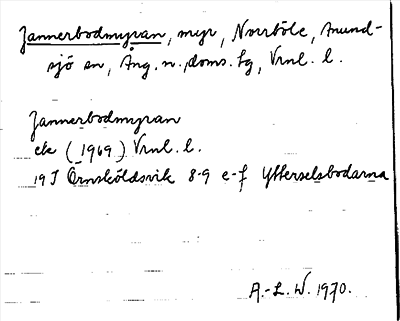 Jannerbodmyran, myr, Norrböle, Anund-
sjö sn, Ång. n. doms. tg, Vrnl. l.
Jannerbodmyran
ek (1969) Vrnl. l.
19 J Örnsköldsvik 8-9 e-f Ytterselsbodarna
A.-L. W. 1970.